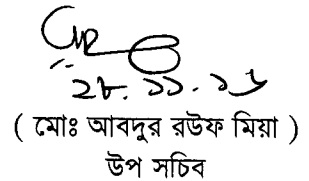 ২৮.১১.১৬
( মোঃ আবদুর রউফ মিয়া )
উপ সচিব